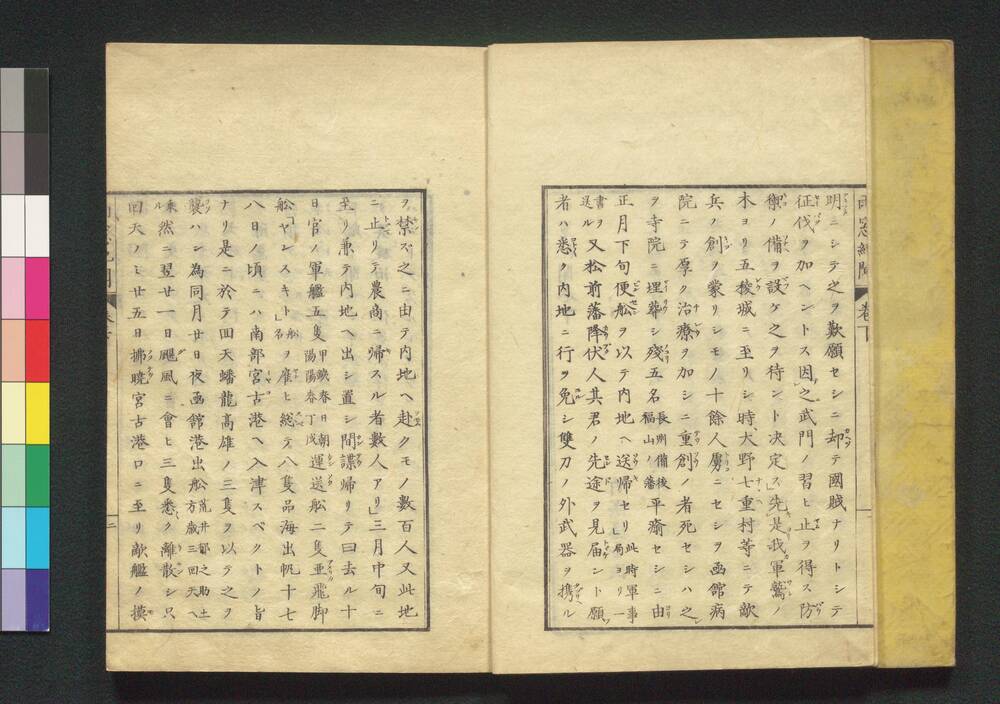 明ニシテ之ヲ歎願セシニ却テ國賊ナリトシテ
征伐ヲ加ヘントス因之武門ノ習ヒ止ヲ得ス防
禦ノ備ヲ設ケ之ヲ待ント決定ス」先是我軍鷲ノ
木ヨリ五稜城ニ至リシ時大野七重村等ニテ敵
兵ノ創ヲ蒙リシモノ十餘人虜ニセシヲ函館病
院ニテ厚ク治療ヲ加シニ重創ノ者死セシハ之
ヲ寺院ニ埋葬シ殘五名長州備後福山ノ藩平癒セシニ由
正月下旬便舩ヲ以テ内地ヘ送帰セリ」此時軍事局ヨリ一
書ヲ送ル又松前藩降伏人其君ノ先途ヲ見届ント願
者ハ悉ク内地ニ行ヲ免シ雙刀ノ外武器ヲ携ル
卷下
ヲ禁ズ之ニ由テ内地ヘ赴クモノ數百人又此地
ニ止リテ農商ニ帰スル者數人アリ」三月中旬ニ
至リ兼テ内地ヘ出シ置シ間諜帰リテ曰去ル十
日官ノ軍艦五隻甲鐵春日朝陽陽春丁戊運送舩二隻亜飛脚
舩「ヤンスキト」舩名ヲ雇ヒ総テ八隻品海出帆十七
八日ノ頃ニハ南部宮古港ヘ入津スベクトノ旨
ナリ是ニ於テ回天蟠龍高雄ノ三隻ヲ以テ之ヲ
襲ハン為同月廿日夜函館港出舩荒井郁之助土方歳三回天ヘ
乘ル然ニ翌廿一日颶風ニ會ヒ三隻悉ク離散シ只
回天ノミ廿五日拂曉宮古港口ニ至リ敵艦ノ摸
二